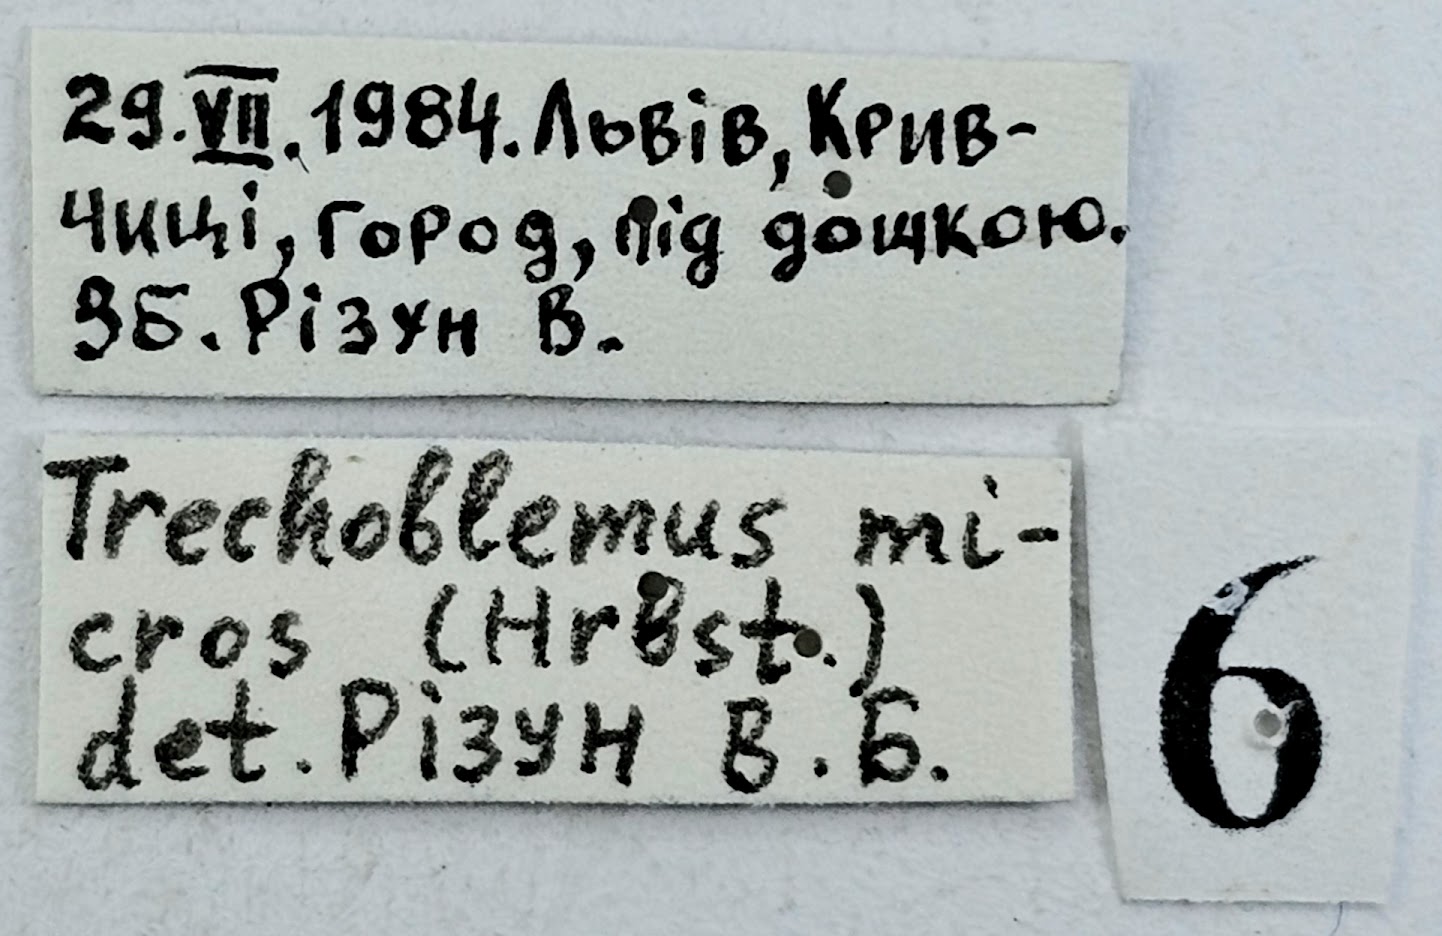 29.VII.1984. Львів, Крив-
чиці, город, під дошкою.
Зб. Різун В.
Trechoblemus mi-
cros (Hrbst.)
det. Різун В.Б.
6